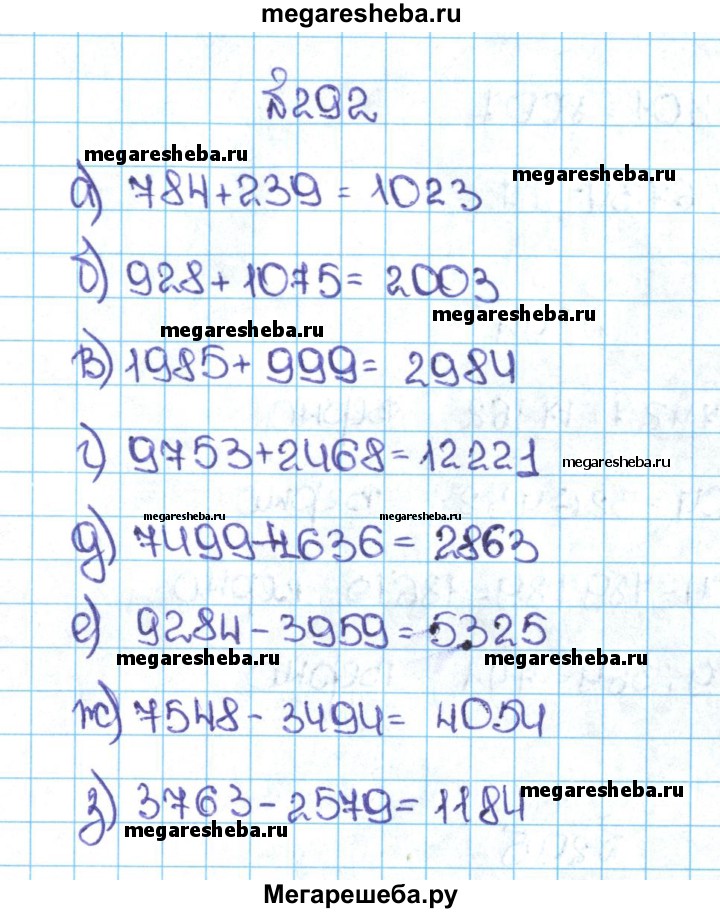 megaresheba.ru
№292
megaresheba.ru
megaresheba.ru
а) 784+239 = 1023
megaresheba.ru
б) 928+1075= 2003
megaresheba.ru
megaresheba.ru
в) 1985+ 999= 2984
г) 9753+2468=12221
megaresheba.ru
megaresheba.ru
megaresheba.ru
д) 7499-4636 = 2863
е) 9284-3959=5325
megaresheba.ru
megaresheba.ru
ж) 7548- 3494= 4054
з) 3763-2579=1184
megaresheba.ru
megaresheba.ru
Мегарешеба.ру